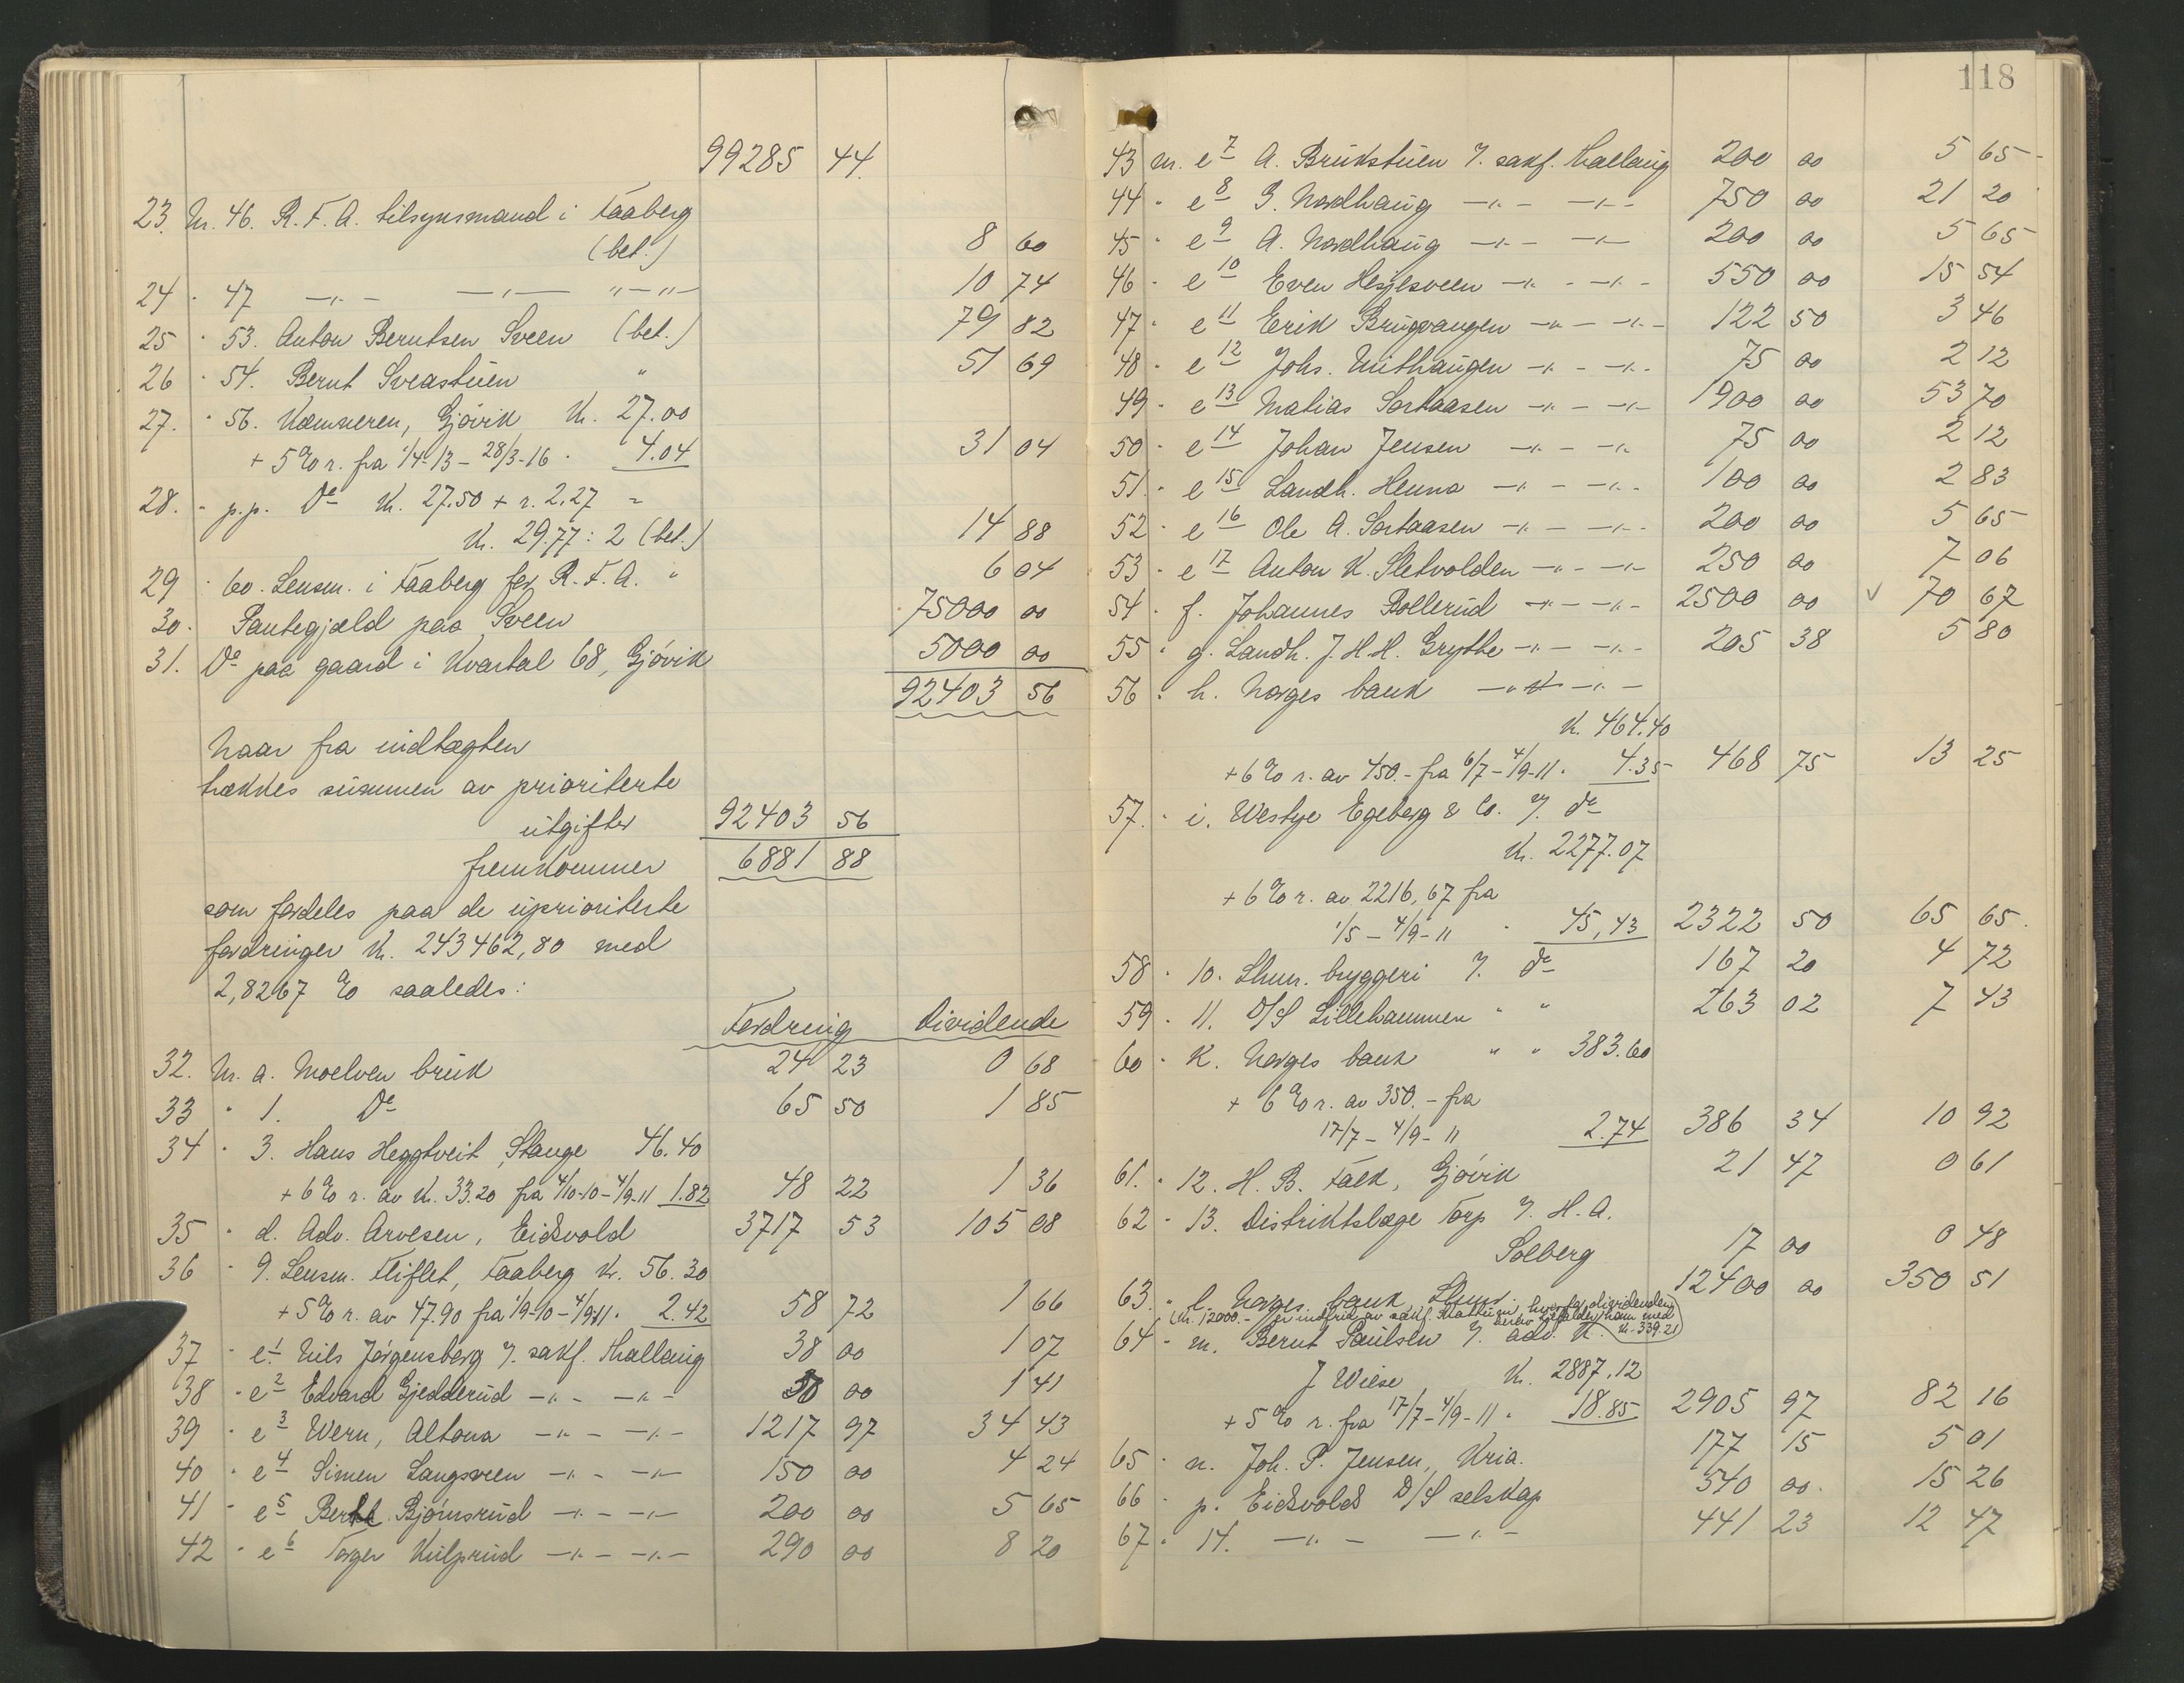 99285 44.
23. Nr. 46. R. F. A. tilsynsmand i Faaberg
(bet.) 8 60
24 " 47 —"— —"— "—"— 10 74
25 " 53. Anton Berntsen Sveen (bet.) 79 82
26 " 54. Bernt Sveastuen " 51 69
27. " 56. Kæmneren, Gjøvik Kr. 27.00
+ 5 % r. fra 1/4-13 - 28/3-16 " 4.04 31 04
28. " p.p. Do Kr. 27.50 + r. 2.27 =
Kr. 29.77 : 2 (bet.) 14 88
29 " 60. Lensm. i Faaberg for R. F. A. " 6 04
30. Pantegjæld paa Sveen 75000 00
31. Do paa gaard i Kvartal 68, Gjøvik 5000 00
92403 56
Naar fra indtægten
trækkes summen av prioriterte
utgifter 92403 56
fremkommer 6881 88
som fordeles paa de uprioriterte
fordringer Kr. 243462,80 med
2,8267 % saaledes:
Fordring Dividende
32. Nr. a. Moelven bruk 24 23 0 68
33 " 1. Do 65 50 1 85
34 " 3. Hans Heggtveit, Stange 46.40
+ 6 % r. av Kr. 33.20 fra 4/10-10 - 4/9-11 1.82 48 22 1 36
35 " d. Adv. Arvesen, Eidsvold 3717 53 105 08
36 " 9. Lensm. Fliflet, Faaberg Kr. 56.30
+ 5 % r. av 47.90 fra 1/9-10 - 4/9-11. 2.42 58 72 1 66
37 " e1 Nils Jørgensberg v. sakf. Thallaug 38 00 1 07
38 " e2 Edvard Gjedderud —"— —"— 50 00 1 41
39 " e3 Wern, Altona —"— —"— 1217 97 34 43
40 " e4 Simen Langsveen —"— —"— 150 00 4 24
41 " e5 Bernt Bjørnsrud —"— —"— 200 00 5 65
42 " e6 Torger Kulprud —"— —"— 290 00 8 20
118
43 Nr. e7 A. Brukstuen v. sakf. Thallaug 200 00 5 65
44 " e8 G. Nordhaug —"— —"— 750 00 21 20
45 " e9 A. Nordhaug —"— —"— 200 00 5 65
46 " e10 Even Hesjesveen —"— —"— 550 00 15 54
47 " e11 Erik Brugvangen —"— —"— 122 50 3 46
48 " e12 Johs. Nuthaugen —"— —"— 75 00 2 12
49 " e13 Matias Sortaasen —"— —"— 1900 00 53 70
50 " e14 Johan Jensen —"— —"— 75 00 2 12
51 " e15 Landh. Henna —"— —"— 100 00 2 83
52 " e16 Ole A. Sortaasen —"— —"— 200 00 5 65
53 " e17 Anton K. Sletvolden —"— —"— 250 00 7 06
54 " f. Johannes Bollerud —"— —"— 2500 00 √ 70 67
55 " g. Landh. J. H. H. Grythe —"— —"— 205 38 5 80
56 " h. Norges bank —"— —"—
Kr. 464.40
+ 6 % r. av 450.- fra 6/7 - 4/9-11. 4.35 468 75 13 25
57. " i. Westye Egeberg & Co. v. do
Kr. 2277.07
+ 6 % r. av 2216,67 fra
1/5 - 4/9-11 " 45,43 2322 50 65 65
58 " 10. Lhmr. bryggeri v. do 167 20 4 72
59 " 11. D/S Lillehammer " " 263 02 7 43
60 " k. Norges bank " " 383.60
+ 6 % r. av 350.- fra
17/7 - 4/9-11 2.74 386 34 10 92
61. " 12. H. B. Falk, Gjøvik 21 47 0 61
62 " 13. Distriktslæge Torp v. H. A.
Solberg 17 00 0 48
63. " l. Norges bank Lhmr. 12400 00 350 51
(Kr. 12000.- er indfrid av sakf. hvorfor dividenden herav tilfalder ham med Kr. 339.21)
64 " m. Bernt Paulsen v. adv. K.
J Wiese Kr. 2887.12
+ 5 % r. fra 17/7 - 4/9-11. 18.85 2905 97 82 16
65 " n. Joh. P. Jensen, Kria. 177 15 5 01
66 " p. Eidsvolds D/S selskap 540 00 15 26
67 " 14. —"— —"— 441 23 12 47